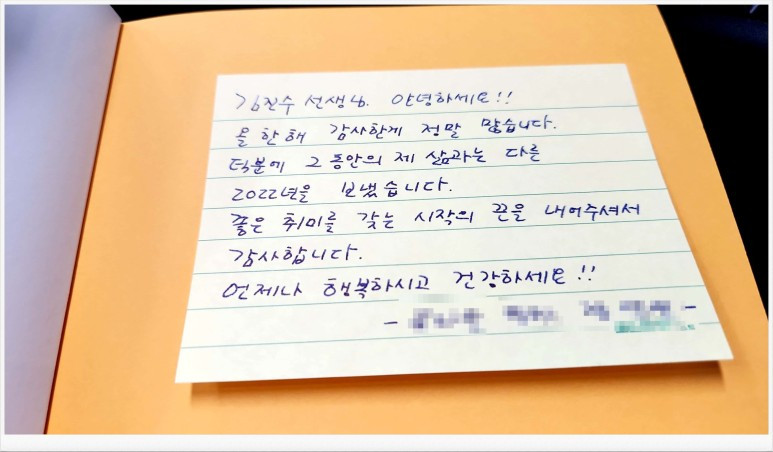 김진수 선생님. 안녕하세요!!
올 한해 감사한게 정말 많습니다.
덕분에 그 동안의 제 삶과는 다른
2022년을 보냈습니다.
좋은 취미를 갖는 시작의 끈을 내어주셔서
감사합니다.
언제나 행복하시고 건강하세요!!